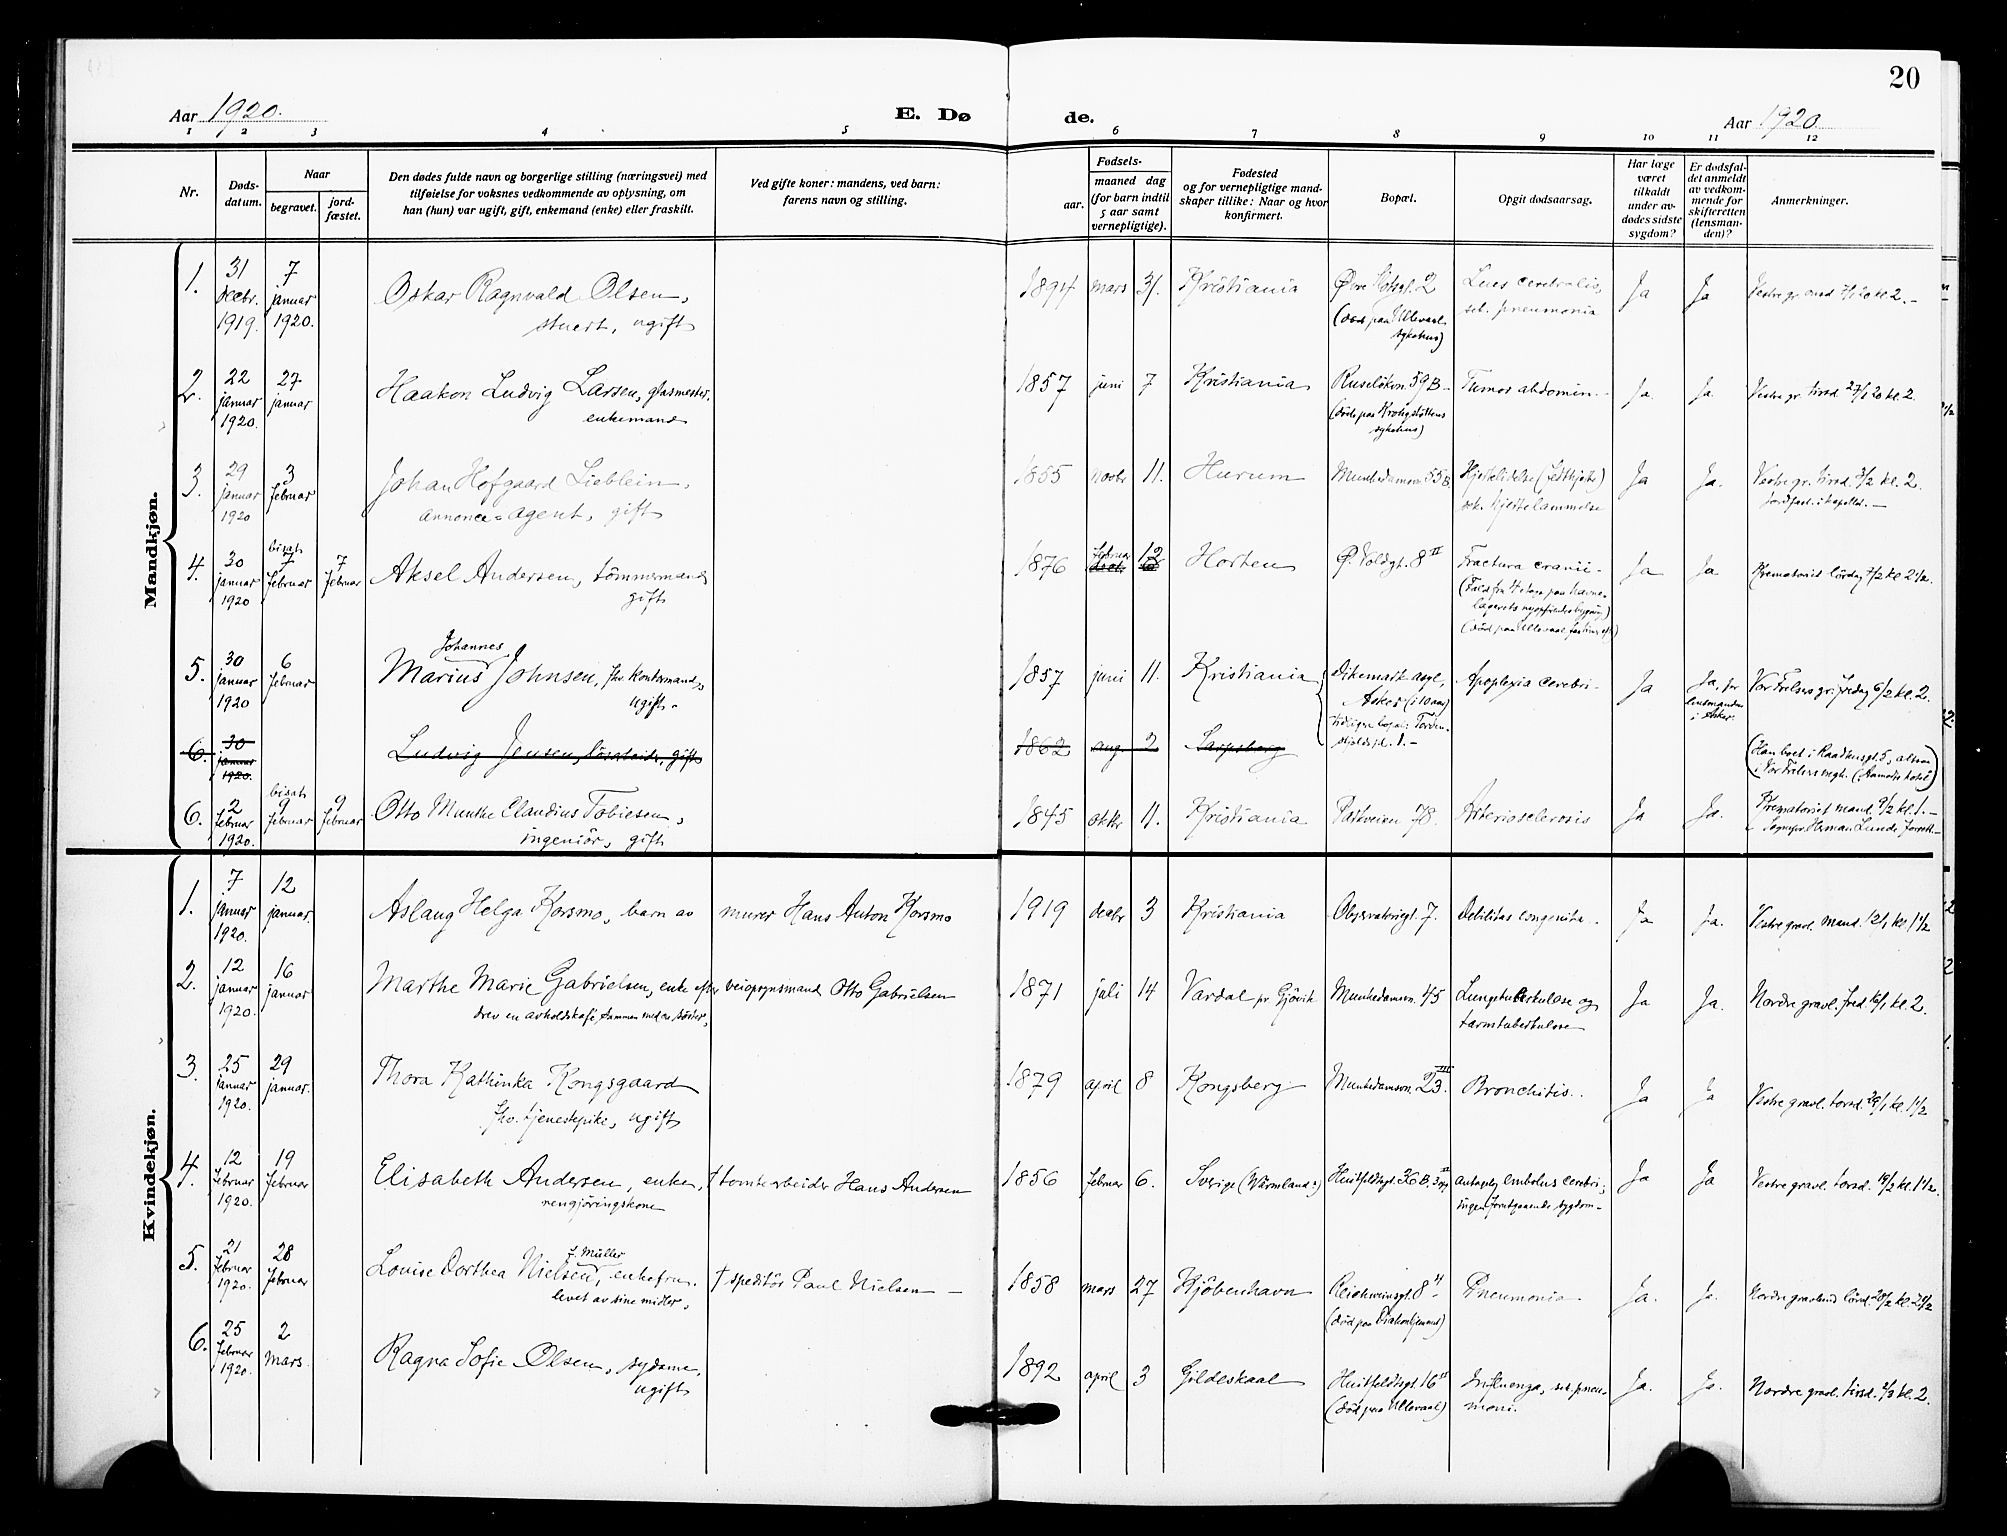 20
Aar 1920.
E. Dø
de.
Aar 1920
1 2 3 4 5 6 7 8 9 10 11 12
Nr.
Døds-
datum.
Naar
begravet.
jord-
fæstet.
Den dødes fulde navn og borgerlige stilling (næringsvei) med
tilføielse for voksnes vedkommende av oplysning, om
han (hun) var ugift, gift, enkemand (enke) eller fraskilt.
Ved gifte koner: mandens, ved barn:
farens navn og stilling.
Fødsels-
aar.
maaned dag
(for barn indtil
5 aar samt
vernepligtige).
Fødested
og for vernepligtige mand-
skaper tillike: Naar og hvor
konfirmert.
Bopæl.
Opgit dødsaarsag.
Har læge
været
tilkaldt
under av-
dødes sidste
sygdom?
Er dødsfal-
det anmeldt
av vedkom-
mende for
skifteretten
(lensman-
den)?
Anmerkninger.
Mandkjøn.
1. 31 decbr. 1919. 7 januar 1920.
Oskar Ragnvald Olsen,
stuert, ugift
1894 mars 31. Kristiania
Øvre Slotsgt. 2
(død paa Ullevaal
sykehus)
Lues cerebralis,
seb. pneumonia
Ja Ja
Vestre gr. onsd 7/1 20 kl 2.-
2. 22 januar 1920. 27 januar
Haakon Ludvig Larsen, glasmester,
enkemand
1857 juni 7 Kristiania
Ruseløkvn. 59 B-
(død paa Krohgstøttens
sykehus)
Tumor abdomin.-
Ja. Ja.
Vestre gr. tirsd. 27/1 20 kl. 2.
3. 29 januar 1920 3 februar
Johan Hofgaard Lieblein,
annonce-agent, gift
1855 novbr 11. Hurum
Munkedamsvn. 55 B.
Hjertelidelse (fedthjerte)
Hjertelammelse
Ja Ja.
Vestre gr. tirsd. 3/2 kl. 2.
Jordfæst. i kapellet.-
4. 30 januar 1920 bisat 7 februar 7 februar
Aksel Andersen, tømmermand
gift
1876 februar 12 Horten
Ø. Voldgt. 8 II
Fractura cranii-
(Fald fra 4 etage paa
(død paa Ullevaal
Ja Ja
Krematoriet lørdag 7/2 kl 2 1/2.
5. 30 januar 1920 6 februar
Johannes
Marius Johnsen, fhv. kontormand,
ugift.
1857 juni 11. Kristiania
Dikemark asyl,
Asker (i 10 aar)
tidligere bopæl: Torden-
skjoldsgt. 1.-
Apoplexia cerebri-
Ja Ja, for
lensmanden
i Asker.
Vor Frelsers gr. fredag 6/2 kl. 2.
6. 30 januar 1920.
Ludvig Jensen, løsarbeider, gift
1862 aug 2 Sarpsborg
(Han boet i Raadhusgt. 5, altsaa
i Vor Frelsers mgh. (Aamots hotel)
6. 2 februar 1920. bisat 9 februar 9 februar
Otto Munthe Claudius Tobiesen,
ingeniør, gift
1845 oktbr 11. Kristiania
Parkveien 78.
Arteriosclerosis
Ja Ja.
Krematoriet mand. 9/2 kl. 1.-
Sognepr. Herman Lunde, forrett.-
Kvindekjøn.
1. 7 januar 1920. 12 januar.
Aslaug Helga Korsmo, barn av murer Hans Anton Korsmo
1919 decbr 3 Kristiania
Observatoriegt. 7.
Debilitas congenita.
Ja Ja.
Vestre gravl. mand. 12/1 kl. 1 1/2
2. 12 januar 1920. 16 januar
Marthe Marie Gabrielsen, enke efter veiopsynsmand Otto Gabrielsen
drev en avholdskafé sammen med en søster,
1871 juli 14 Vardal pr Gjøvik
Munkedamsvn. 45
Lungetuberkulose og
tarmtuberkulose
Ja Ja.
Nordre gravl. fred. 16/1 kl. 2.
3. 25 januar 1920. 29 januar.
Thora Kathinka Kongsgaard
fhv. tjenestepike, ugift
1879 april 8 Kongsberg
Munkedamsvn. 23. III
Bronchitis.
Ja Ja
Vestre gravl. torsd. 29/1 kl. 1 1/2
4. 12 februar 1920. 19 februar
Elisabeth Andersen, enke, † tomtearbeider Hans Andersen
rengjøringskone
1856 februar 6. Sverige (Wärmland?)
Huitfeldtsgt. 36 B.
antagelig embolus cerebri,
ingen foregaaende sygdom-
Ja Ja
Vestre gravl. torsd. 19/2 kl. 1 1/2.
5. 21 februar 1920. 28 februar
f. Müller
Louise Dorthea Nielsen, enkefru. † speditør Paul Nielsen -
levet av sine midler,
1858 mars 27 Kjøbenhavn
Reichweinsgt. 8 4
(død paa Diakonhjemmet)
Pneumonia.
Ja. Ja.
Nordre gravlund lørd 28/2 kl. 2 1/2
6. 25 februar 1920. 2 mars.
Ragna Sofie Olsen, sydame,
ugift
1892 april 3 Gildeskaal
Huitfeldtsgt. 16 II
(død paa Ullevaal)
Influenza, seb. pneu-
moni.
Ja. Ja.
Nordre gravl. tirsd. 2/3 kl. 2.